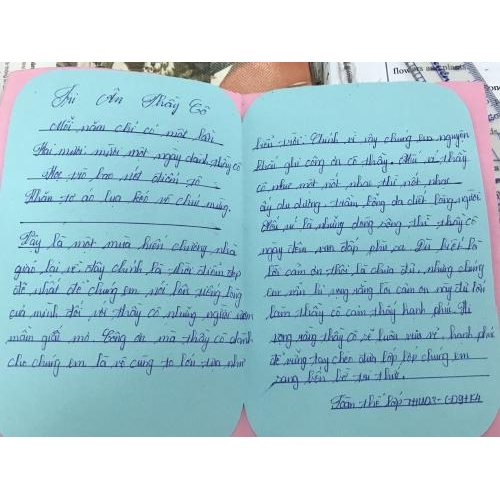 Tri Ân Thầy Cô
Mỗi năm chỉ có một lần
Hai mươi mười một ngày dành thầy cô
Học trò bao nét điểm tô
Thân tơ áo lụa kéo về chúc mừng.
Đây là một mùa hiến chương nhà
giáo lại về đây chính là thời điểm đẹp
đẽ nhất để chúng em nói lên tiếng lòng
của mình đối với thầy cô những người ươm
mầm giấc mơ. Công ơn mà thầy cô dành
cho chúng em là vô cùng to lớn tựa như
biển trời. Chính vì vậy chúng em nguyện
khải ghi công ơn cô thầy. Nếu ví thầy
cô như một nốt nhạc thì nốt nhạc
ấy du dương, trầm bổng da diết lòng người
Nếu ví là những dòng sông thì thầy cô
ngày đêm vun đắp phù sa. Dù biết lời
lời cảm ơn thôi là chưa đủ, nhưng chúng
em vẫn hi vọng rằng lời cảm ơn này đủ lớn
làm thầy cô cảm thấy hạnh phúc. Hi
vọng rằng thầy cô sẽ luôn vui vẻ, hạnh phúc
để vững tay chèo đưa lớp lớp chúng em
sang bến bờ tri thức.
Toàn thể lớp